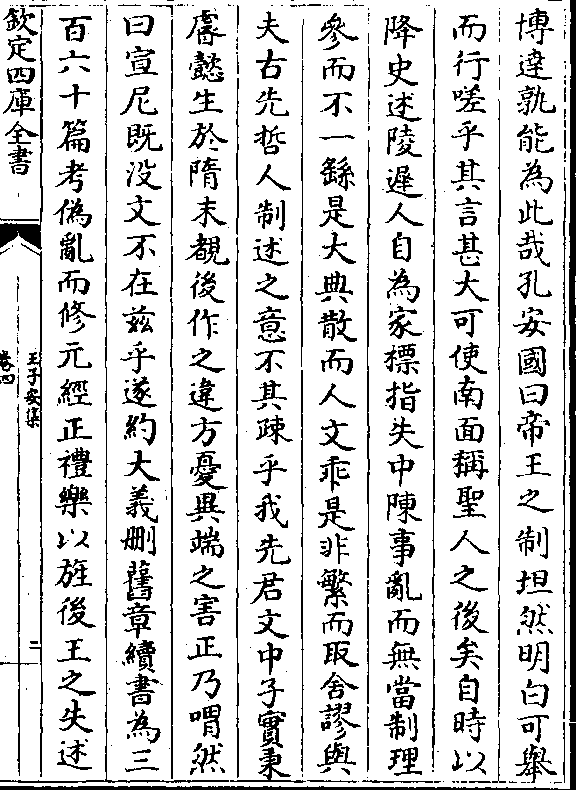 博達孰能為此哉孔安國曰帝王之制坦然明白可舉
而行嗟乎其言甚大可使南面稱聖人之後矣自時以
降史述陵遲人自為家標指失中陳事亂而無當制理
參而不一繇是大典散而人文乖是非繁而取舍謬與
夫古先哲人制述之意不其疎乎我先君文中子實秉
睿懿生於隋末覩後作之違方憂異端之害正乃喟然
曰宣尼既没文不在兹乎遂約大義删舊章續書為三
百六十篇考偽亂而修元經正禮樂以旌後王之失述
欽定四庫全書
王子安集
卷四
二